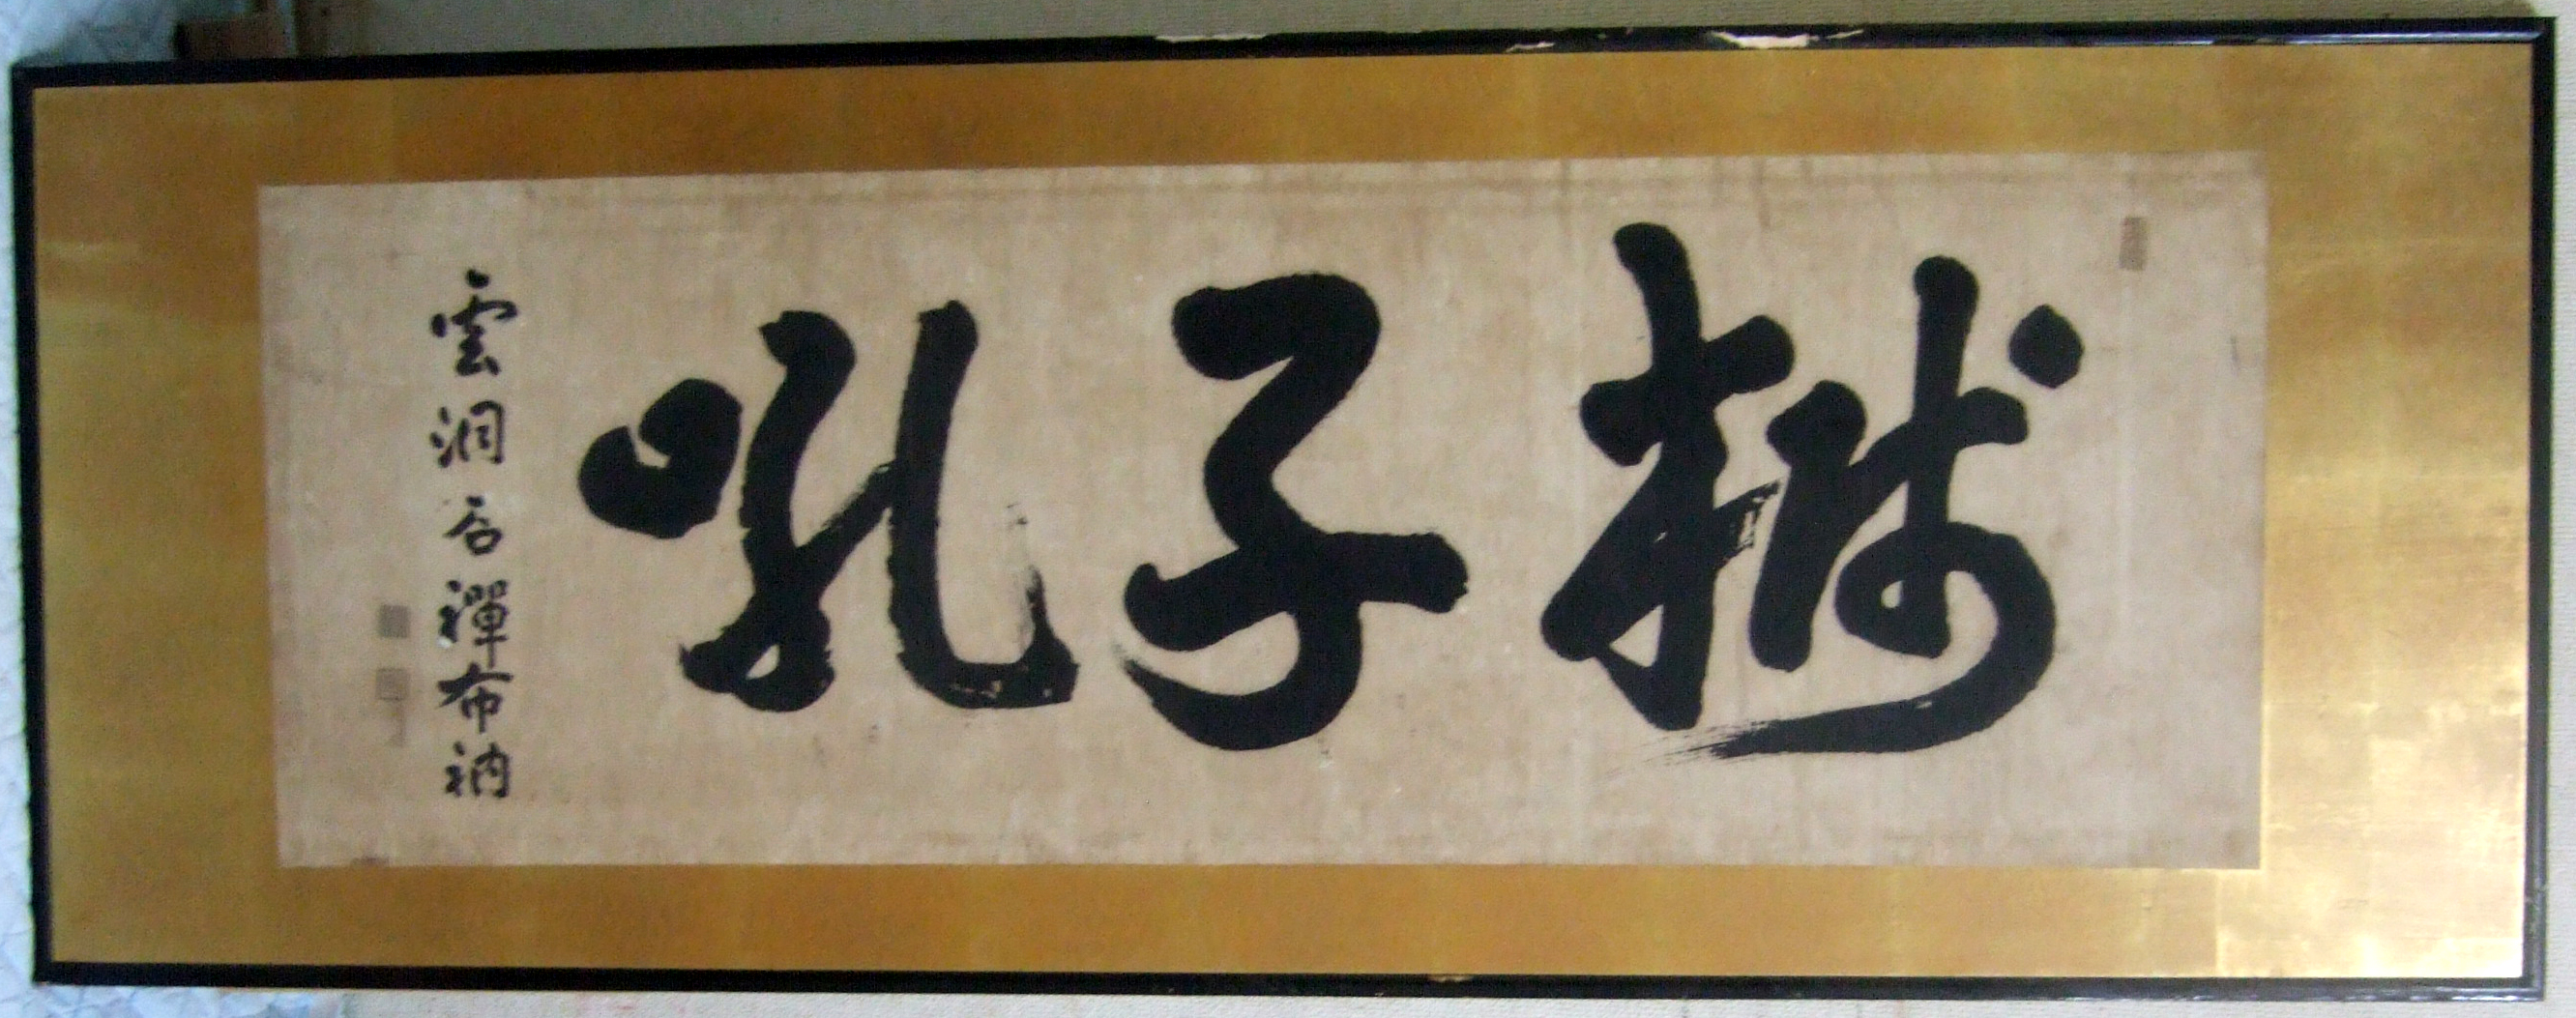 獅子吼
雲洞谷禪布衲